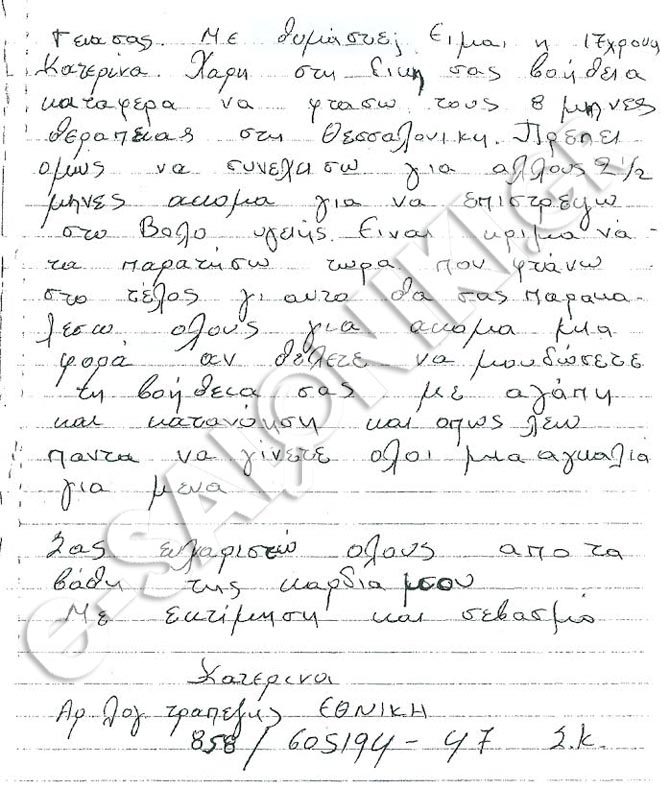 Γεια σας. Με θυμάστε; Ειμαι η 17χρονη
Κατερίνα. Χαρη στη δικη σας βοήθεια
καταφερα να φτασω τους 8 μηνες
θεραπειας στη Θεσσαλονικη. Πρέπει
ομως να συνεχισω για αλλους 2 1/2
μηνες ακομα για να επιστρεψω
στο Βολο υγειής. Ειναι κριμα να
τα παρατήσω τωρα που φτάνω
στο τέλος γι αυτο θα σας παρακα-
λεσω ολους για ακομα μια
φορά αν θέλετε να μου δώσετε
τη βοήθεια σας με αγάπη
και κατανόηση και οπως λεω
παντα να γίνετε ολοι μια αγκαλιά
για μενα
Σας ευχαριστώ ολους απο τα
βάθη της καρδια μσου
Με εκτίμηση και σεβασμό
Κατερινα
Αρ. λογ τραπεζης ΕΘΝΙΚΗ
858/605194-47 Σ.Κ.
e-SALONIKI.gr